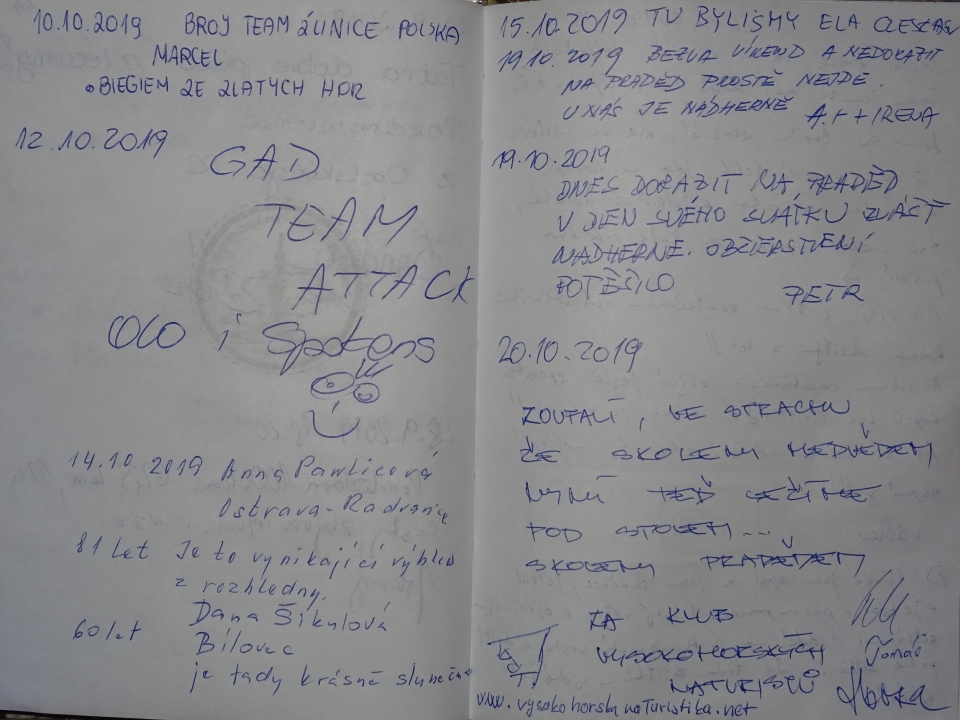 10.10.2019 BROJ TEAM ŻLINICE POLSKA
MARCEL
BIEGIEM ZE ZLATYCH HOR
12.10.2019
GAD
TEAM
ATTACK
OLO i
14.10 2019 Anna Pawlicová
Ostrava-Radvanice
81 let Je to vynikající výhled
z rozhledny.
Dana Šikulová
60 let Bílovec
je tady krásně slunečně
15.10.2019 TU BYLIŚMY ELA
19.10.2019 BEZVA VÍKEND A NEDORAZIT
NA PRADĚD PROSTĚ NEJDE.
U NÁS JE NÁDHERNĚ A.F + IRENA
19.10.2019
DNES DORAZIT NA PRADĚD
V DEN SVÉHO SVÁTKU ZLÁŠŤ
NÁDHERNE. OBČERSTVENÍ
POTĚŠILO PETR
20.10.2019
ZOUFALÍ, VE STRACHU
ŽE SKOLENI MEDVĚDEM
NYNÍ TEĎ LEŽÍME
POD STOLEM...
SKOLENI PRADĚDEM
ZA KLUB
VYSOKOHORSKÝCH Tomáš
NATURISTŮ
www.vysokohorskanaturistika.net